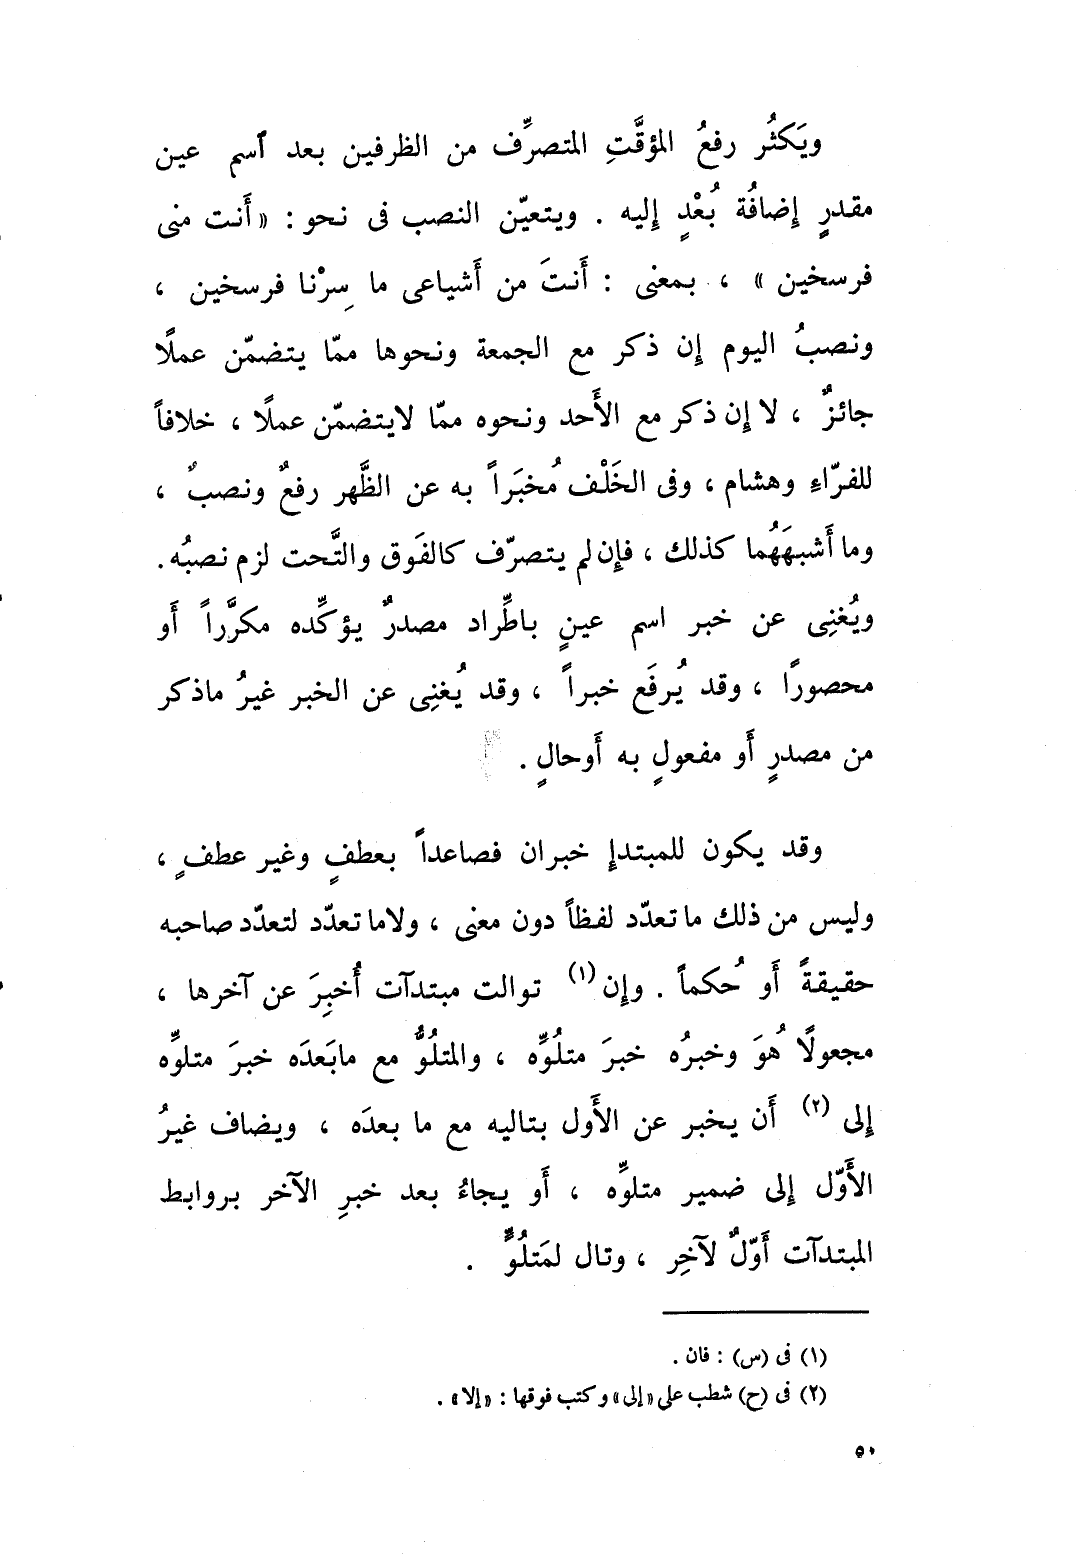 ويَكثُر رفعُ المؤقَّتِ المتصرِّف من الظرفين بعد ٱسم عين
مقدرٍ إضافُة بُعْدٍ إليه . ويتعيّن النصب فى نحو : « أَنت منى
فرسخين » ، بمعنى : أَنتَ من أَشياعى ما سِرْنا فرسخين ،
ونصبُ اليوم إن ذكر مع الجمعة ونحوها ممّا يتضمّن عملًا
جائزٌ ، لا إن ذكر مع الأَحد ونحوه ممّا لايتضمّن عملًا ، خلافاً
للفرّاءِ وهشام ، وفى الخَلْف مُخبَراً به عن الظَّهر رفعٌ ونصبٌ ،
وما أَشبهَهُما كذلك ، فإن لم يتصرّف كالفَوق والتَّحت لزم نصبُه .
ويُغنِى عن خبر اسم عينٍ باطِّراد مصدرٌ يؤكِّده مكرَّراً أَو
محصورًا ، وقد يُرفَع خبراً ، وقد يُغنِى عن الخبر غيرُ ماذكر
من مصدرٍ أَو مفعولٍ به أَوحالٍ .
وقد يكون للمبتدإ خبران فصاعداً بعطفٍ وغير عطفٍ ،
وليس من ذلك ما تعدّد لفظاً دون معنى ، ولاما تعدّد لتعدّد صاحبه
حقيقةً أَو حُكماً . وإن (١) توالت مبتدآت أُخبِرَ عن آخرها ،
مجعولًا هُوَ وخبرُه خبرَ متلُوِّه ، والمتلُوُّ مع مابَعدَه خبرَ متلوِّه
إلى (٢) أَن يخبر عن الأَول بتاليه مع ما بعدَه ، ويضاف غيرُ
الأَوّل إلى ضمير متلوِّه ، أَو يجاءُ بعد خبرِ الآخر بروابط
المبتدآت أَوّلٌ لآخِر ، وتال لمَتلُوٍّ .
(١) فى (س) : فان .
(٢) فى (ح) شطب على «إلى» وكتب فوقها : «إلا» .
٥٠